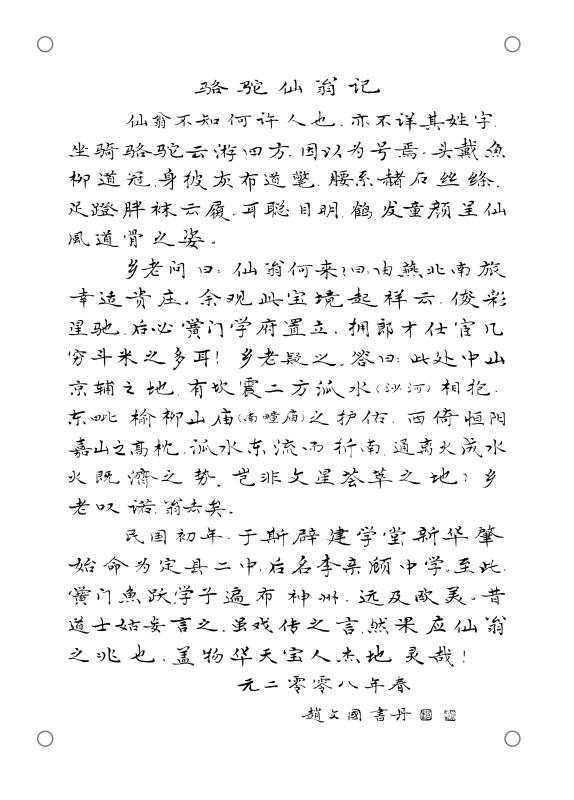 骆驼仙翁记
仙翁不知何许人也，亦不详其姓字，
坐骑骆驼云游四方，因以为号焉。头戴魚
柳道冠，身披灰布道氅，腰系赭石丝绦，
足蹬胖袜云履。耳聪目明，鹤发童颜呈仙
風道骨之姿。
乡老问曰：仙翁何来？曰：由燕北南旅
幸造贵庄。余观此宝境起祥云，俊彩
星驰，后必黉门学府置立，拥郎才仕官几
穷斗米之多耳！乡老疑之。答曰：此处中山
京辅之地，有坎震二方泒水（沙河）相抱，
东毗榆柳山庙（南疃庙）之护佑，西倚恒阳
嘉山之高枕，泒水东流而折南，通离火成水
火既济之势，岂非文星荟萃之地？乡
老叹诺，翁去矣。
民国初年，于斯辟建学堂，新华肇
始命为定县二中，后名李亲顾中学。至此，
黉门魚跃，学子遍布神州，远及欧美。昔
道士姑妄言之，虽戏传之言，然果应仙翁
之兆也，盖物华天宝人杰地灵哉！
元二零零八年春
趙文國書丹